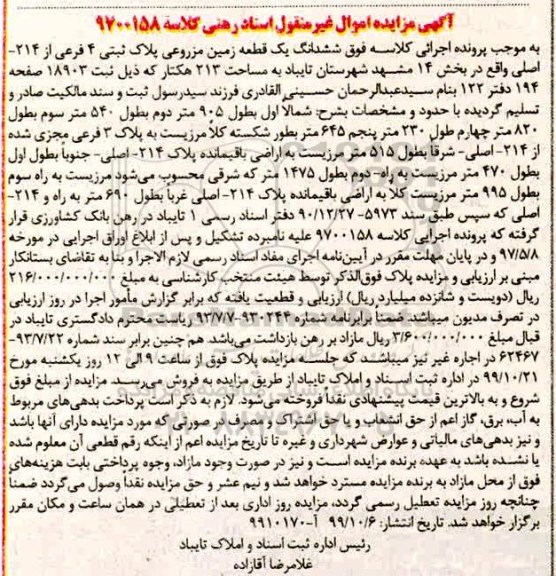 آگهی مزایده اموال غیرمنقول اسناد رهنی کلاسه ۹۷۰۰۱۵۸
به موجب پرونده اجرائی کلاسه فوق ششدانگ یک قطعه زمین مزروعی پلاک ثبتی ۴ فرعی از ۲۱۴-
اصلی واقع در بخش ۱۴ مشهد شهرستان تایباد به مساحت ۲۱۳ هکتار که ذیل ثبت ۱۸۹۰۳ صفحه
۱۹۴ دفتر ۱۲۲ بنام سیدعبدالرحمان حسینی القادری فرزند سیدرسول ثبت و سند مالکیت صادر و
تسلیم گردیده با حدود و مشخصات بشرح: شمالاً اول بطول ۹۰۵ متر دوم بطول ۵۴۰ متر سوم بطول
۸۲۰ متر چهارم طول ۲۳۰ متر پنجم ۶۴۵ متر بطور شکسته کلا مرزیست به پلاک ۳ فرعی مجزی شده
از ۲۱۴- اصلی- شرقاً بطول ۵۱۵ متر مرزیست به اراضی باقیمانده پلاک ۲۱۴- اصلی- جنوباً بطول اول
بطول ۴۷۰ متر مرزیست به راه- دوم بطول ۱۴۷۵ متر که شرقی محسوب می‌شود مرزیست به راه سوم
بطول ۹۹۵ متر مرزیست کلا به اراضی باقیمانده پلاک ۲۱۴- اصلی غرباً بطول ۶۹۰ متر به راه و ۲۱۴-
اصلی که سپس طبق سند ۵۹۷۳- ۹۰/۱۲/۲۷ دفتر اسناد رسمی ۱ تایباد در رهن بانک کشاورزی قرار
گرفته که پرونده اجرایی کلاسه ۹۷۰۰۱۵۸ علیه نامبرده تشکیل و پس از ابلاغ اوراق اجرایی در مورخه
۹۷/۵/۸ و در پایان مهلت مقرر در آیین‌نامه اجرای مفاد اسناد رسمی لازم الاجرا و بنا به تقاضای بستانکار
مبنی بر ارزیابی و مزایده پلاک فوق‌الذکر توسط هیئت منتخب کارشناسی به مبلغ ۲۱۶/۰۰۰/۰۰۰/۰۰۰
ریال (دویست و شانزده میلیارد ریال) ارزیابی و قطعیت یافته که برابر گزارش مأمور اجرا در روز ارزیابی
در تصرف مدیون میباشد. ضمنا برابرنامه شماره ۹۳۰۲۴۴- ۹۳/۷/۷ ریاست محترم دادگستری تایباد در
قبال مبلغ ۳/۶۰۰/۰۰۰/۰۰۰ ریال مازاد بر رهن بازداشت می‌باشد. هم چنین برابر سند شماره ۹۳/۷/۲۲-
۶۲۴۶۷ در اجاره غیر نیز میباشد. که جلسه مزایده پلاک فوق از ساعت ۹ الی ۱۲ روز یکشنبه مورخ
۹۹/۱۰/۲۱ در اداره ثبت اسناد و املاک تایباد از طریق مزایده به فروش می‌رسد. مزایده از مبلغ فوق
شروع و به بالاترین قیمت پیشنهادی نقداً فروخته می‌شود. لازم به ذکر است پرداخت بدهی‌های مربوط
به آب، برق، گاز اعم از حق انشعاب و یا حق اشتراک و مصرف در صورتی که مورد مزایده دارای آنها باشد
و نیز بدهی‌های مالیاتی و عوارض شهرداری و غیره تا تاریخ مزایده اعم از اینکه رقم قطعی آن معلوم شده
یا نشده باشد به عهده برنده مزایده است و نیز در صورت وجود مازاد، وجوه پرداختی بابت هزینه‌های
فوق از محل مازاد به برنده مزایده مسترد خواهد شد و نیم عشر و حق مزایده نقداً وصول می‌گردد ضمناً
چنانچه روز مزایده تعطیل رسمی گردد، مزایده روز اداری بعد از تعطیلی در همان ساعت و مکان مقرر
برگزار خواهد شد. تاریخ انتشار: ۹۹/۱۰/۶ آ-۹۹۱۰۱۷۰
رئیس اداره ثبت اسناد و املاک تایباد
غلامرضا آقازاده